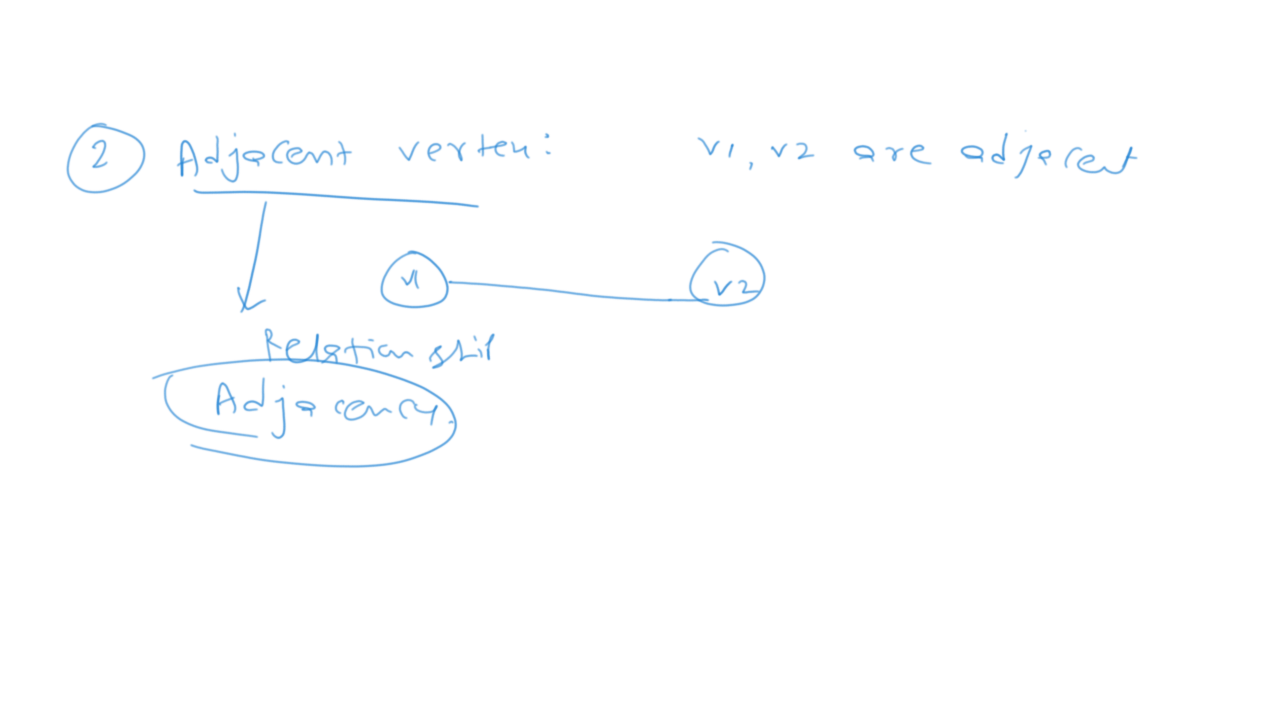 2 Adjacent vertex: v1, v2 are adjacent
v1 v2
Relationship
Adjacency.